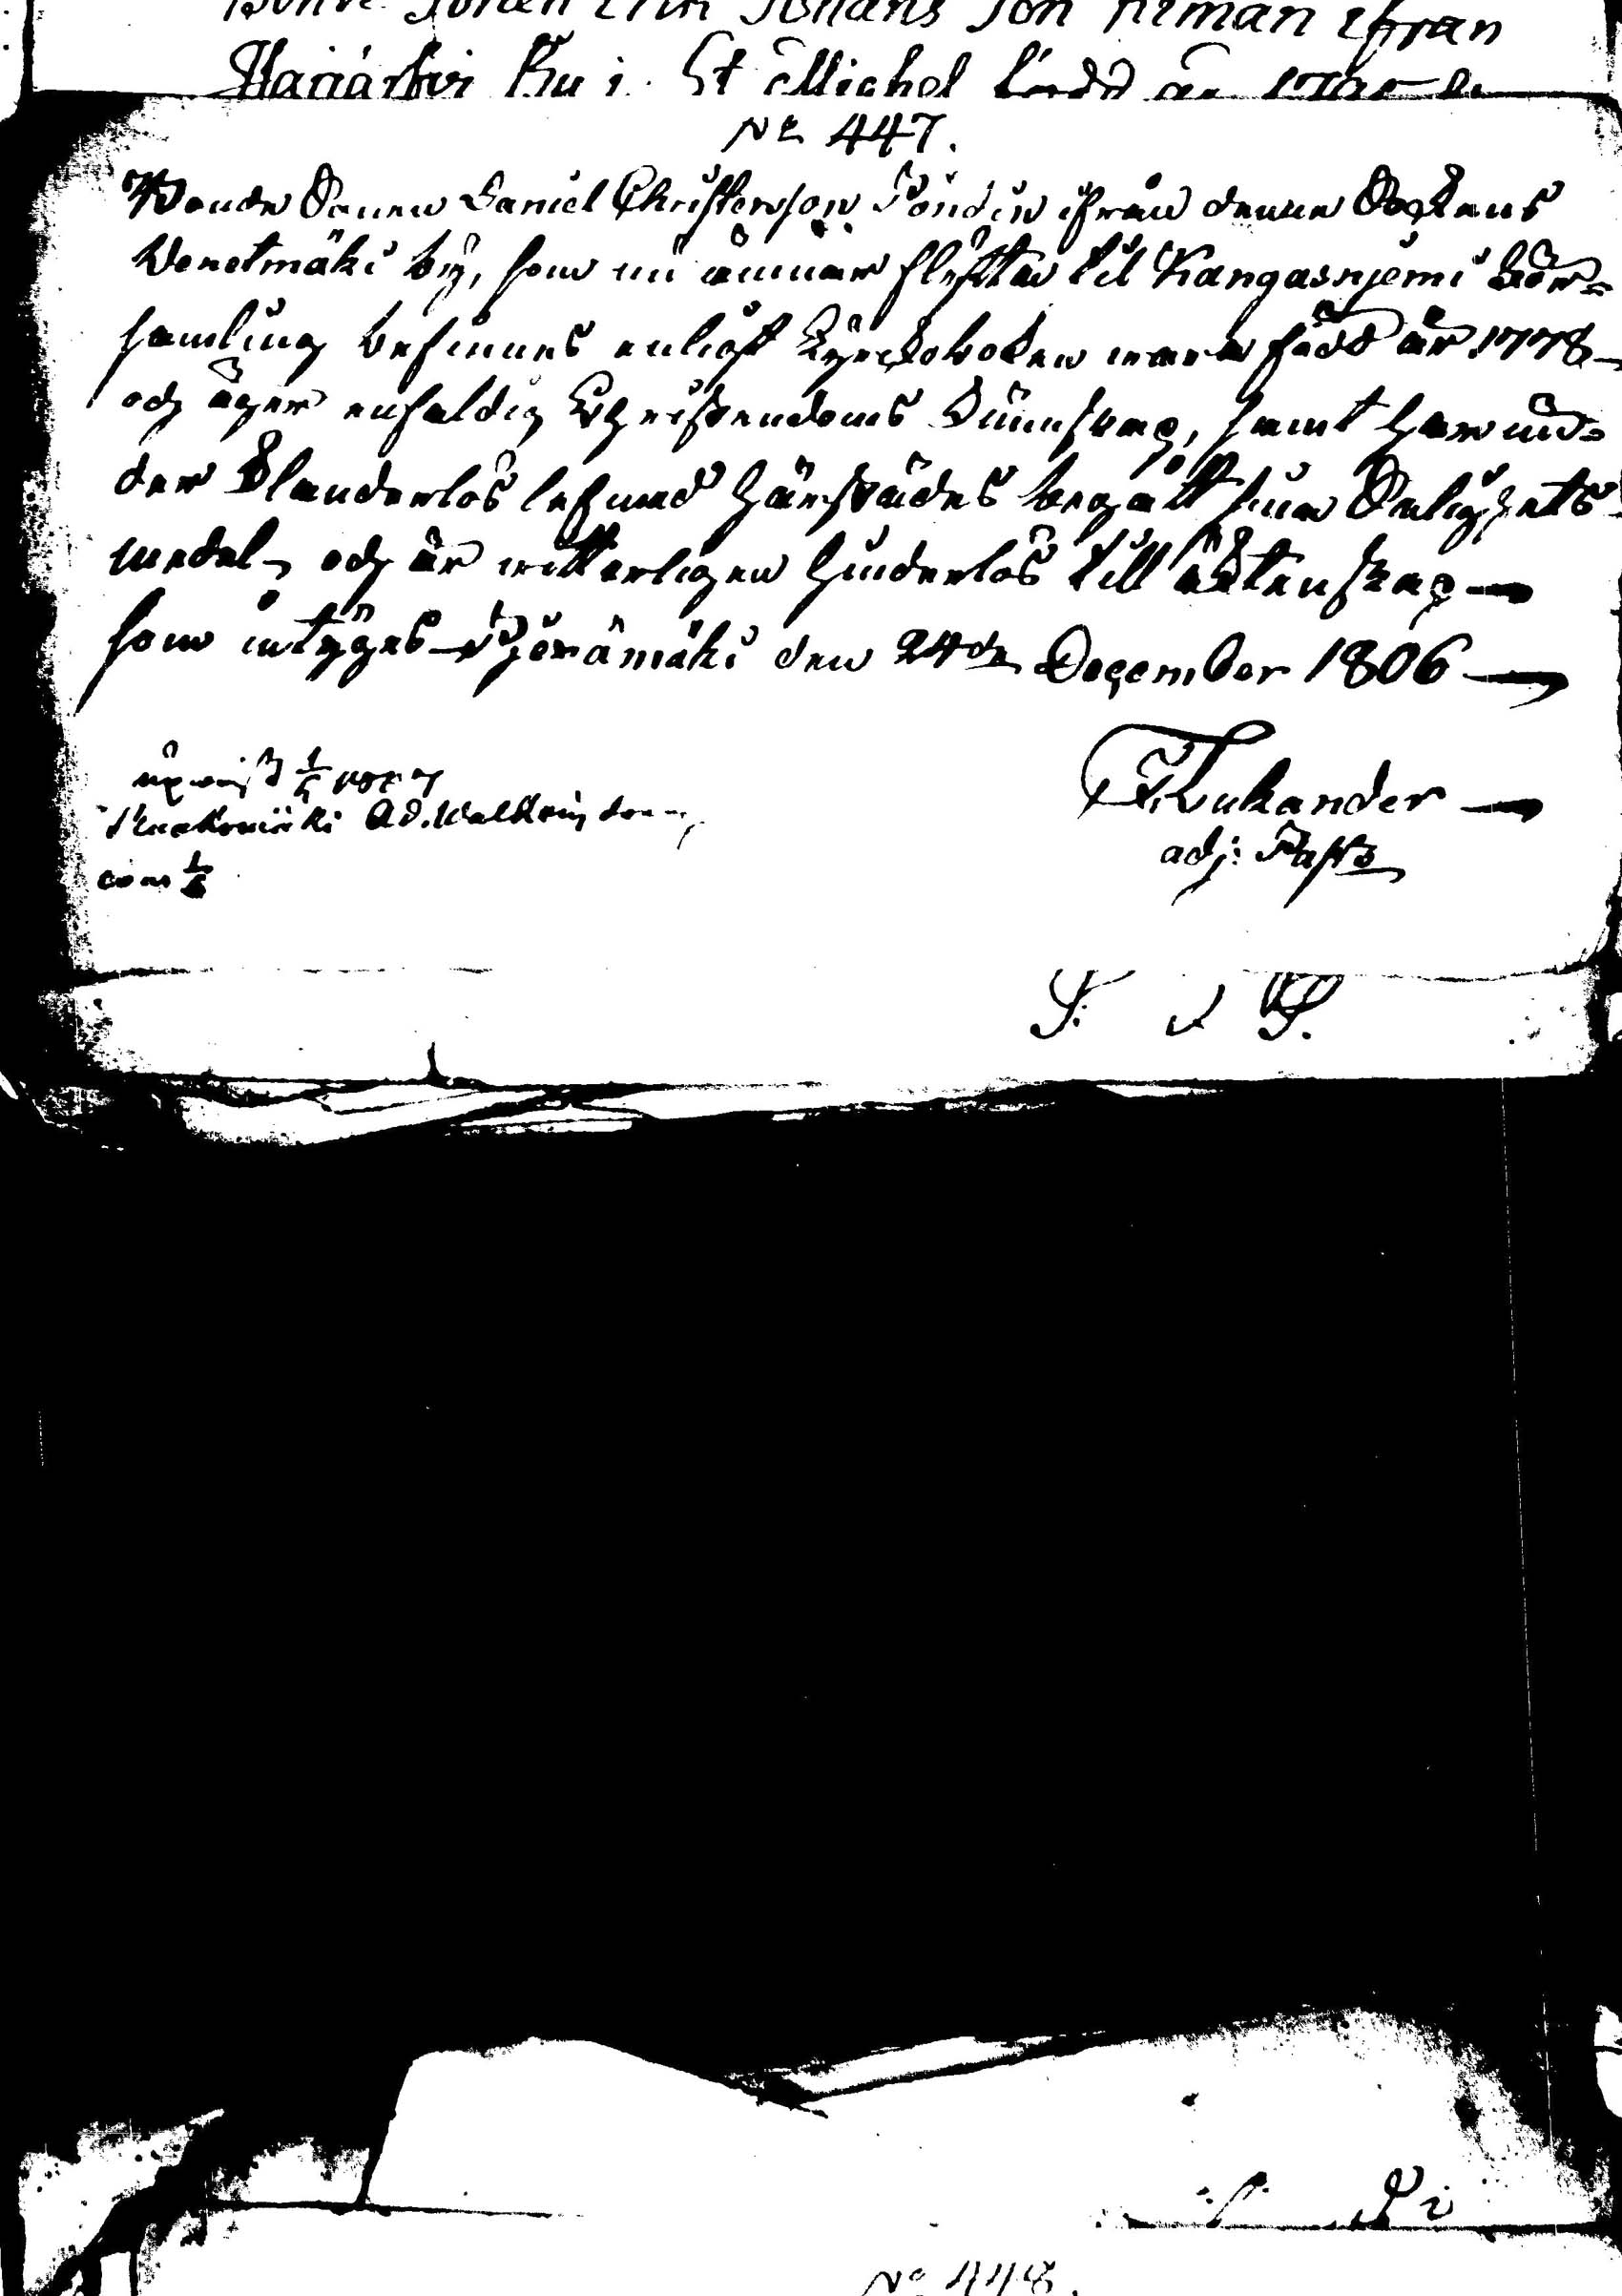 Bonde Sonen Erik Johans Son Himan ifrån
Harjärfvi By i St Michel född år
N:o 447.
Bonde Sonen Daniel Christersson Pöndin ifrån denne Sockens
Wenetmäki by, som nu ämnar flytta til Kangasnjemi För-
samling befinnes enligt Kyrckoboken wara född år 1778
och äger enfaldig Christendoms Kunskap, samt har un-
der Klanderlös lefnad härstädes begått sina Salighets
medel, och är witterligen hinderlös till äktenskap
som intÿges Jorämäki den 24de December 1806
upwist 1/5 1807
Ad. Walleen
F. Lukander
adj: Past:
N:o 448.